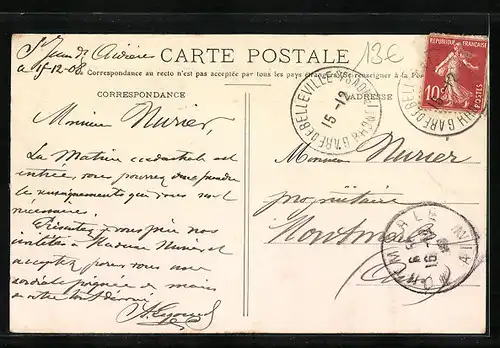 St Jean d'Ardières
a 15-12-08
13€
CARTE POSTALE
Correspondance au recto n'est pas acceptée par tous les pays étrangers (Se renseigner à la Po
CORRESPONDANCE
ADRESSE
REPUBLIQUE FRANÇAISE
10c
POSTES
GARE DE BELLEVILLE
15-12
Monsieur Nurier,
La Matrice cadastrale est
entrée, vous pourrez donc prendre
les renseignements que vous sont
nécessaire.
Présentez nos
à Madame Nurier et
acceptez pour vous une
cordiale poignée de mains
de votre
Monsieur Nurier
propriétaire
Montmerle
(Ain)
MONTMERLE
16-12
AIN